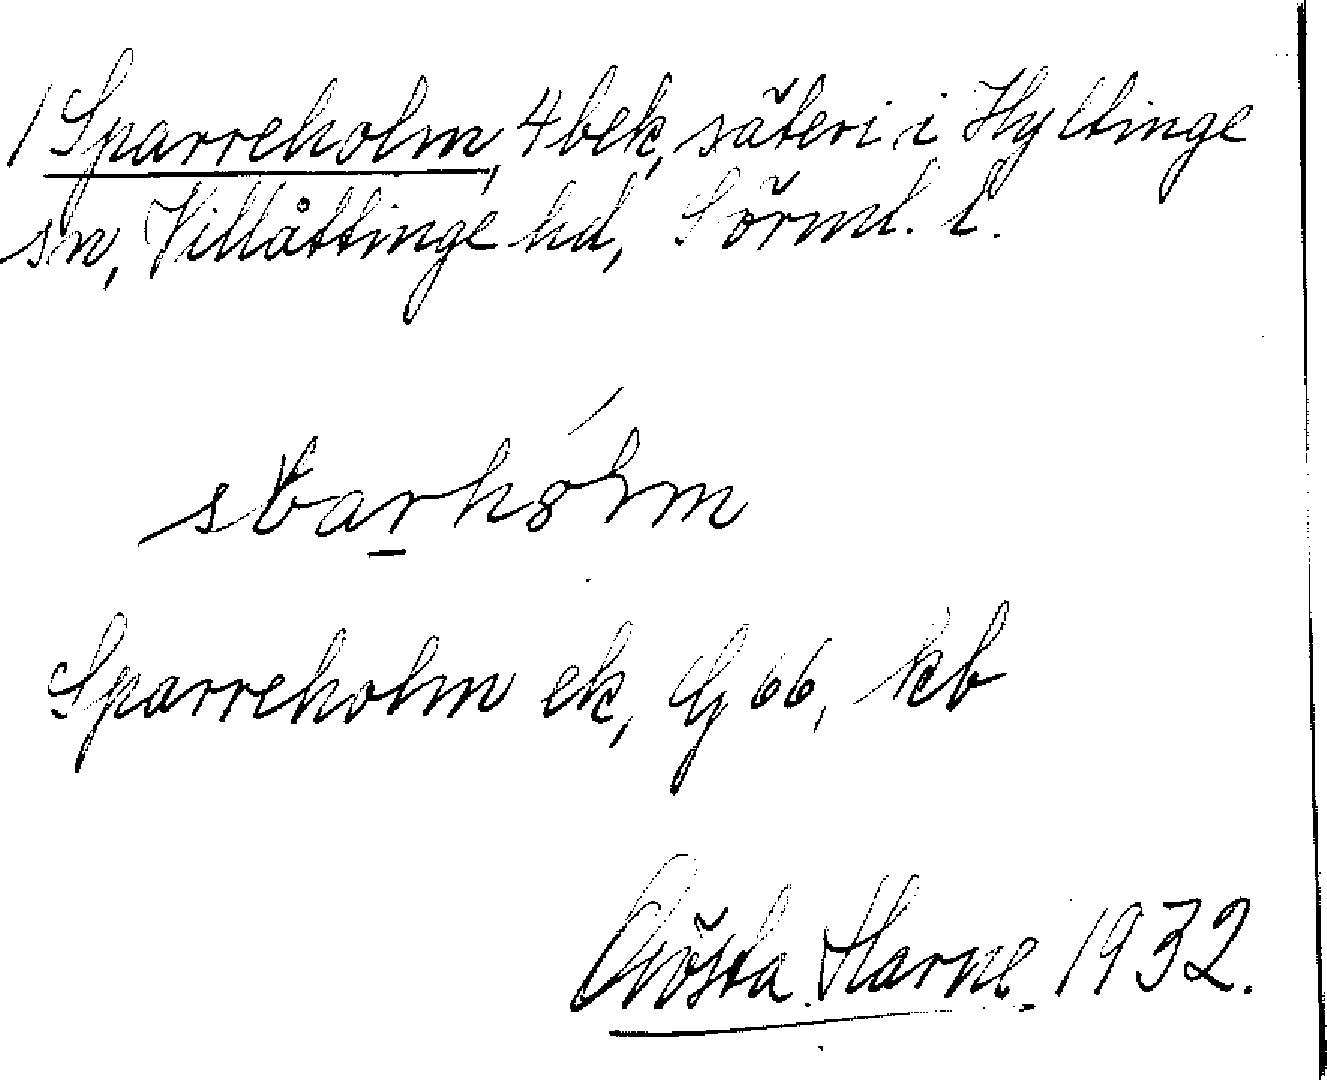 1 Sparreholm, 4 bek, säteri i Hyltinge
sn, Villåttinge hd, Sörml. l.
Sparreholm ek, G 66, kb
Gösta Harne 1932.